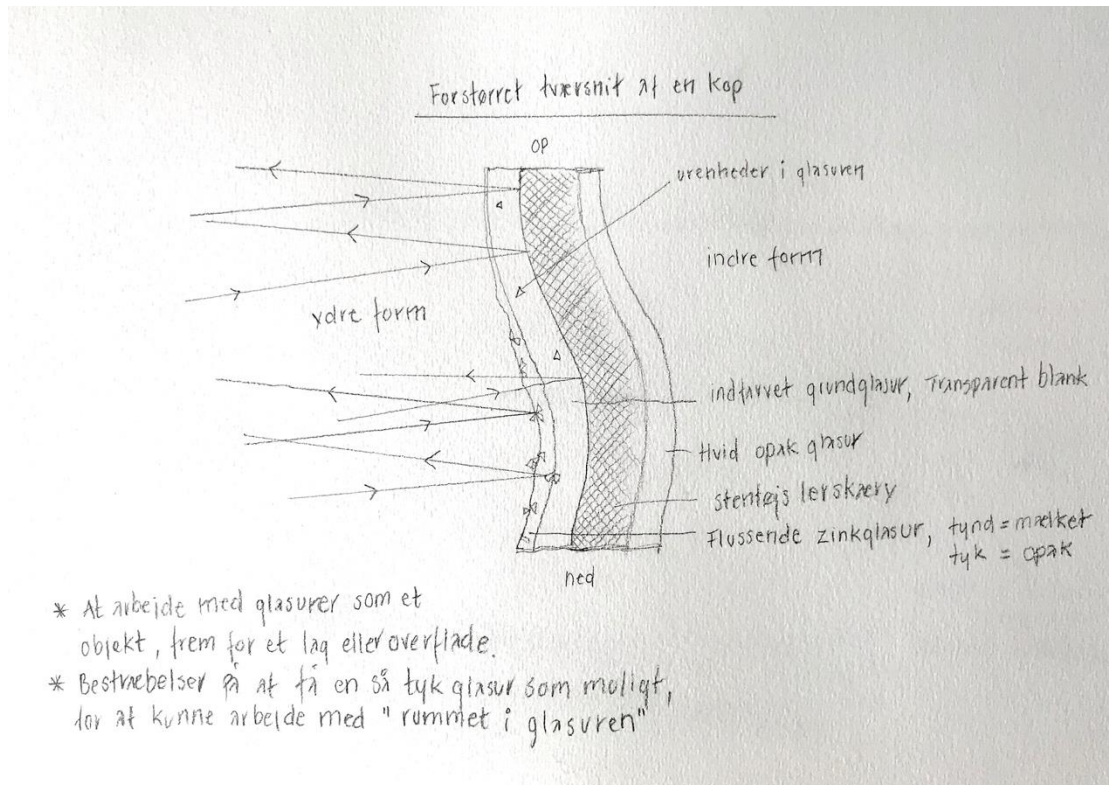 Forstørret tværsnit af en kop
OP
urenheder i glasuren
indre form
ydre form
indfarvet grundglasur, Transparent blank
Hvid opak glasur
stentøjs lerskærv
Flussende zinkglasur, tynd = mælket
tyk = opak
ned
* At arbejde med glasurer som et
objekt, frem for et lag eller overflade.
* Bestræbelser på at få en så tyk glasur som muligt,
for at kunne arbejde med "rummet i glasuren"